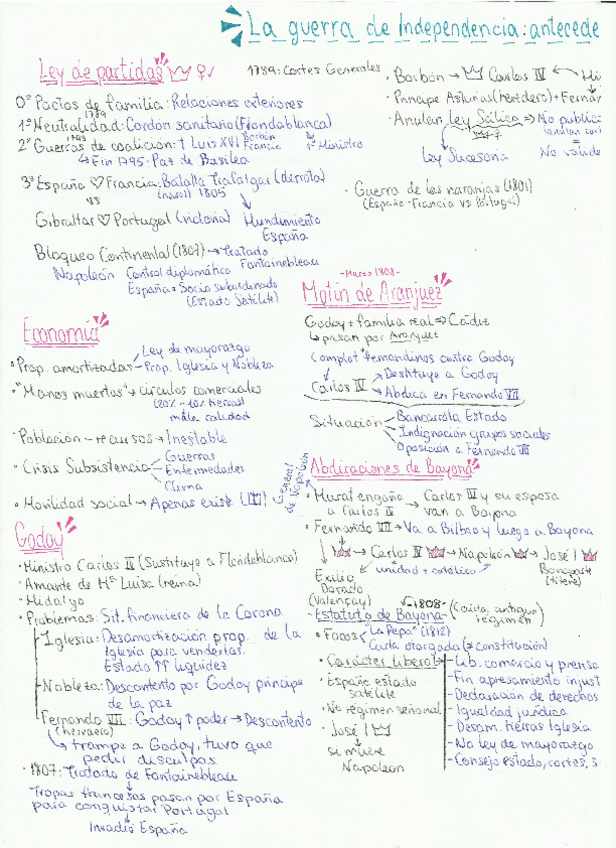 La guerra de Independencia: antecede
Ley de partidas
1789: Cortes Generales
· Borbón → Carlos IV ←
· Príncipe Asturias (heredero) → Fernan
· Anular Ley Sálica → No public
Ley Sucesoria
No válide
0º Pactos de familia: Relaciones exteriores
1789
1º Neutralidad: Cordón sanitario (Floridablanca)
1793
Borbón
2º Guerras de coalición: † Luis XVI Francia
1º Ministro
↳ Fin 1795: Paz de Basilea
3º España ♡ Francia: Batalla Trafalgar (derrota)
vs
(naval) 1805
Gibraltar ♡ Portugal (victoria)
Hundimiento
España
· Guerra de las naranjas (1801)
(España-Francia vs Portugal)
Bloqueo Continental (1807) → Tratado
Fontainebleau
Napoleón Control diplomático
España = Socio subordinado
(Estado Satélite)
Economía
· Prop. amortizadas
Ley de mayorazgo
Prop. Iglesia y Nobleza
· "Manos muertas" → círculos comerciales
mala calidad
· Población - recursos → Inestable
· Crisis Subsistencia
Guerras
Enfermedades
Clima
· Movilidad social → Apenas existe
Godoy
- Ministro Carlos IV (Sustituye a Floridablanca)
- Amante de Mª Luisa (reina)
- Hidalgo
- Problemas: Sit. financiera de la Corona
Iglesia: Desamortización prop. de la
Iglesia para venderlas.
Estado ↑↑ liquidez
- Nobleza: Descontento por Godoy príncipe
de la paz
Fernando VII: Godoy ↑ poder → Descontento
(heredero)
↳ trampa a Godoy, tuvo que
pedir disculpas
· 1807: Tratado de Fontainebleau
Tropas francesas pasan por España
para conquistar Portugal
Invadió España
- Marzo 1808 -
Motín de Aranjuez
Godoy + familia real → Cádiz
↳ pasan por Aranjuez
Complot fernandinos contra Godoy
Carlos IV
Destituye a Godoy
Abdica en Fernando VII
Situación
Bancarrota Estado
Indignación grupos sociales
Oposición a Fernando VII
Abdicaciones de Bayona
General
de Napoleón
· Murat engaña
a Carlos IV
→ Carlos IV y su esposa
van a Bayona
· Fernando VII → Va a Bilbao y luego a Bayona
→ Carlos IV → Napoleón → José I
Bonaparte
(títere)
Exilio
Dorado
(Valençay)
unidad + católica
- 1808 -
- Estatuto de Bayona - (Caída antiguo
régimen)
· Foros
"La Pepa" (1812)
Carta otorgada (≠ constitución)
· Carácter liberal
· España estado
satélite
· No régimen señorial
· José I
si muere
Napoleón
- Lib. comercio y prensa
- Fin apresamiento injust
- Declaración de derechos
- Igualdad jurídica
- Desam. tierras Iglesia
- No ley de mayorazgo
- Consejo estado, cortes, s